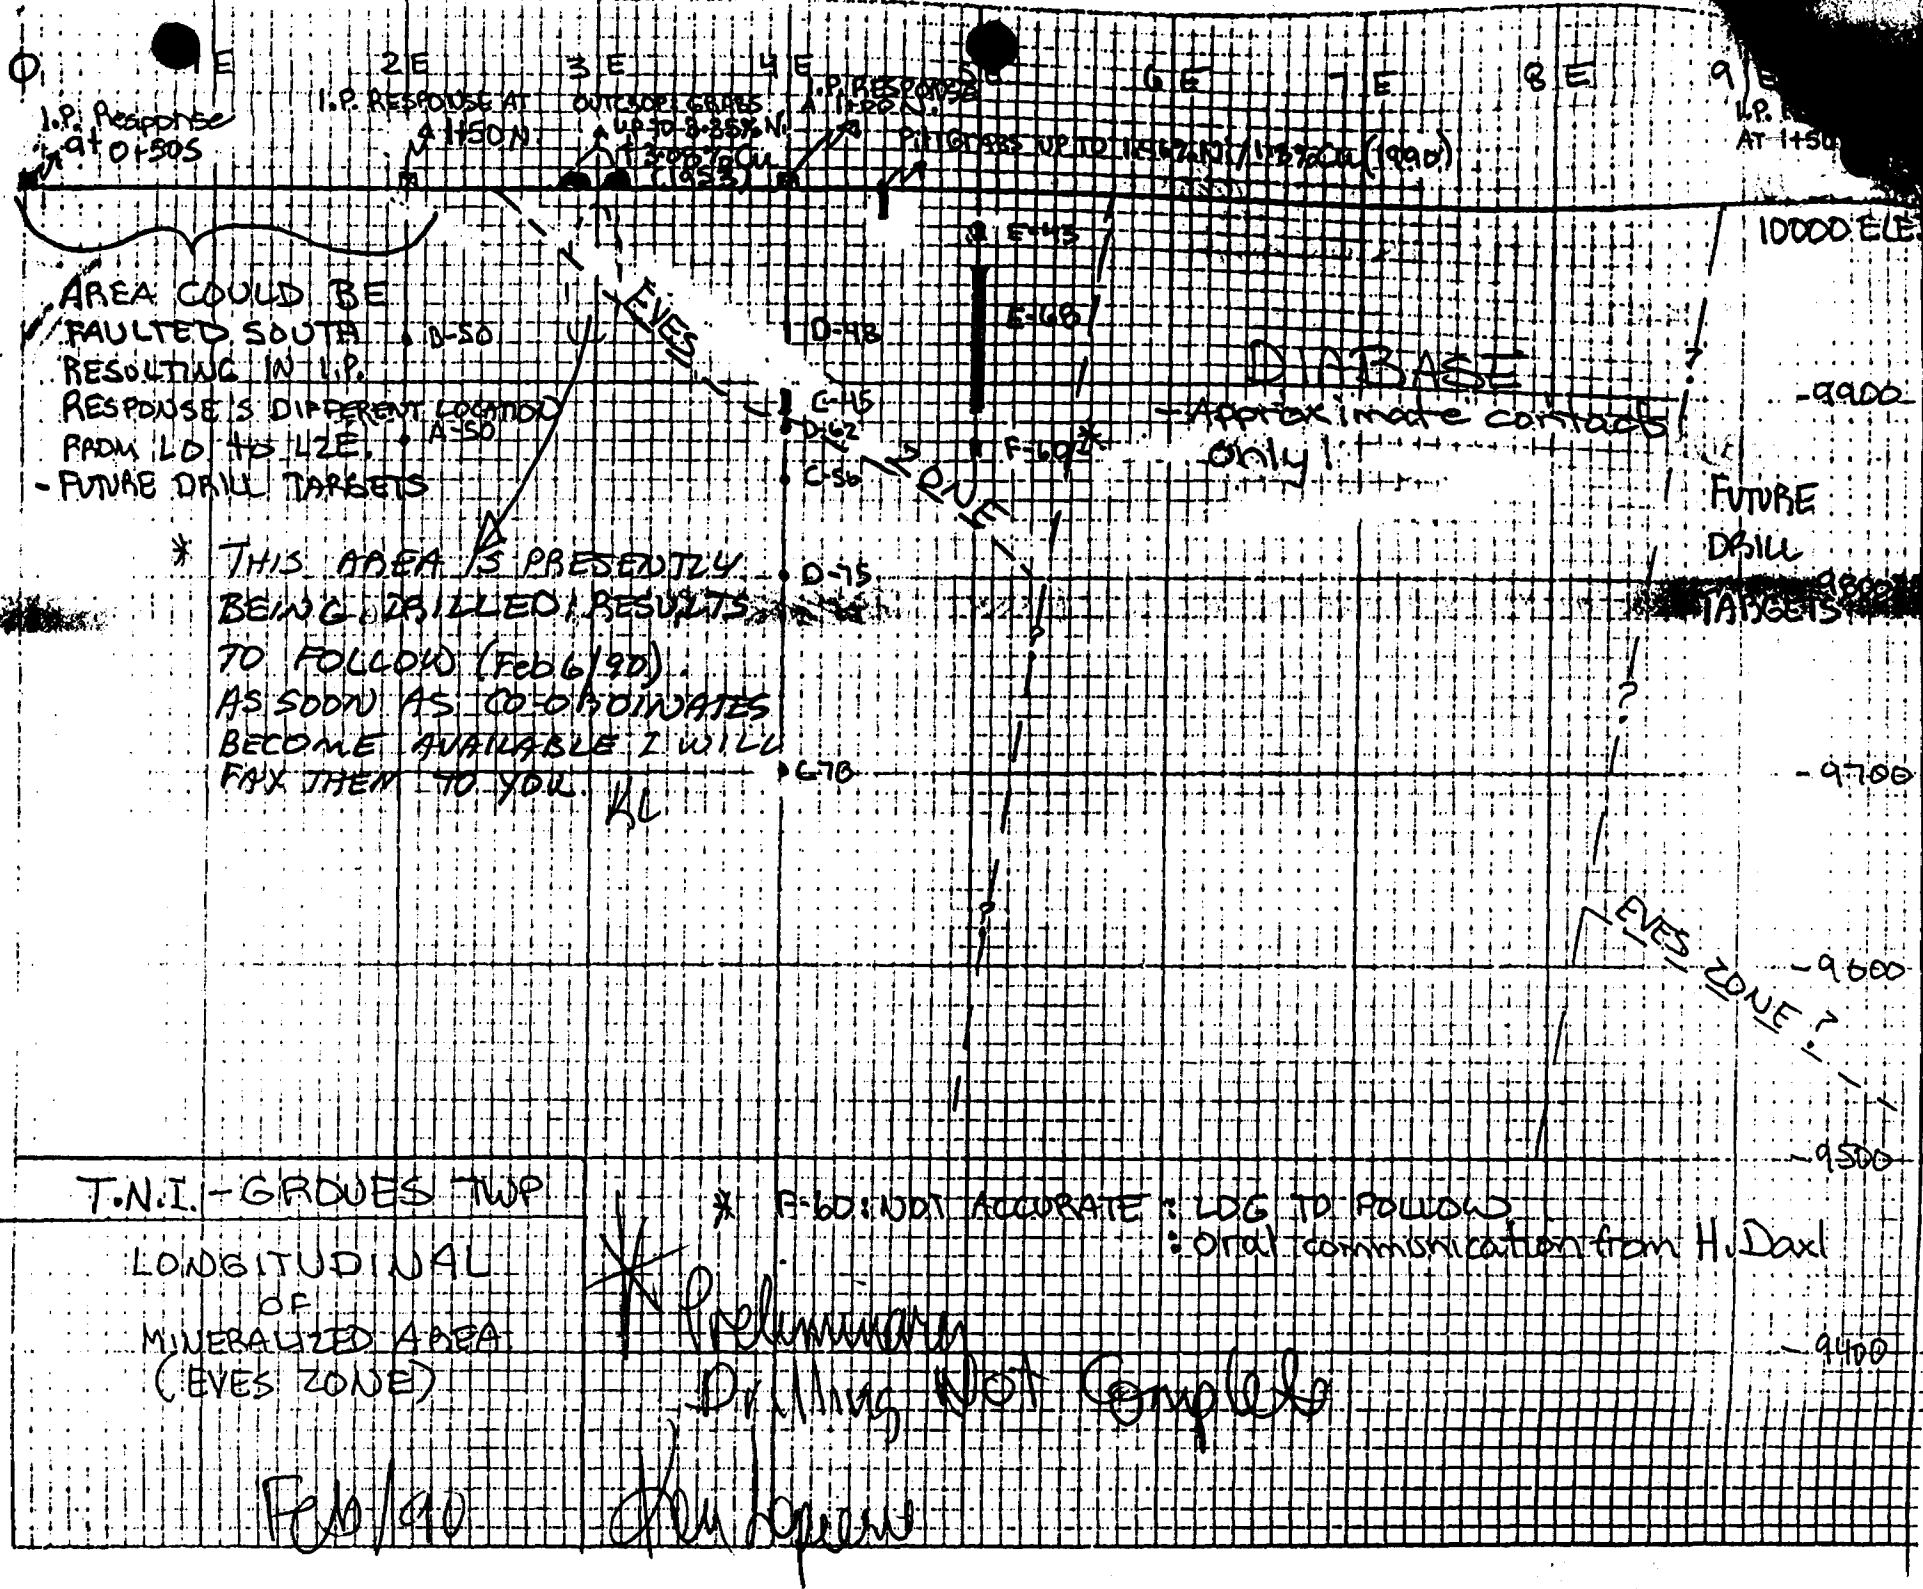 0
E
2E
3 E
4 E
5E
6 E
7 E
8 E
9 E
I.P. Response
at 0+50S
I.P. RESPONSE AT
1+50N.
OUTCROP GRABS
UP TO 3.35% Ni
(1953)
I.P. RESPONSE
PIT GRABS UP TO
(1990)
I.P.
AT 1+50
10000 ELE.
AREA COULD BE
FAULTED SOUTH
RESULTING IN I.P.
RESPONSE'S DIFFERENT LOCATION
FROM L0 to L2E.
- FUTURE DRILL TARGETS
B-50
A-50
EVES
ZONE
D-48
C-45
D-62
C-56
D-75
C-78
E-45
E-68
F-60 *
DIABASE
- Approximate contacts
only!
?
- 9900
FUTURE
DRILL
TARGETS
9800
* THIS AREA IS PRESENTLY
BEING DRILLED; RESULTS
TO FOLLOW (Feb 6/90).
AS SOON AS CO-ORDINATES
BECOME AVAILABLE I WILL
FAX THEM TO YOU. KL
?
?
- 9700
?
EVES ZONE ?
- 9600
- 9500
T.N.I. - GROVES TWP
LONGITUDINAL
OF
MINERALIZED AREA
(EVES ZONE)
Feb/90
* F-60: NOT ACCURATE : LOG TO FOLLOW
: oral communication from H. Daxl
* Preliminary
Drilling Not Complete
- 9400